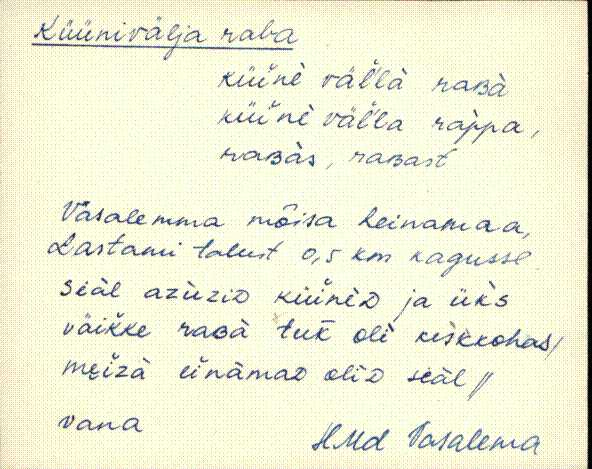 Küünivälja raba
küün̆è väl̆l̀à raʙà
küün̆è väl̆l̀a ràppa,
raʙàs, raʙast
Vasalemma mõisa heinamaa,
Lastami talust 0,5 km kagusse
siäl azùzid küün̆ìᴅ ja üks
väikke raʙà tuk̆ olì keskkohas/
meizà einàmaᴅ olìᴅ siäl //
vana
HMd Vasalema